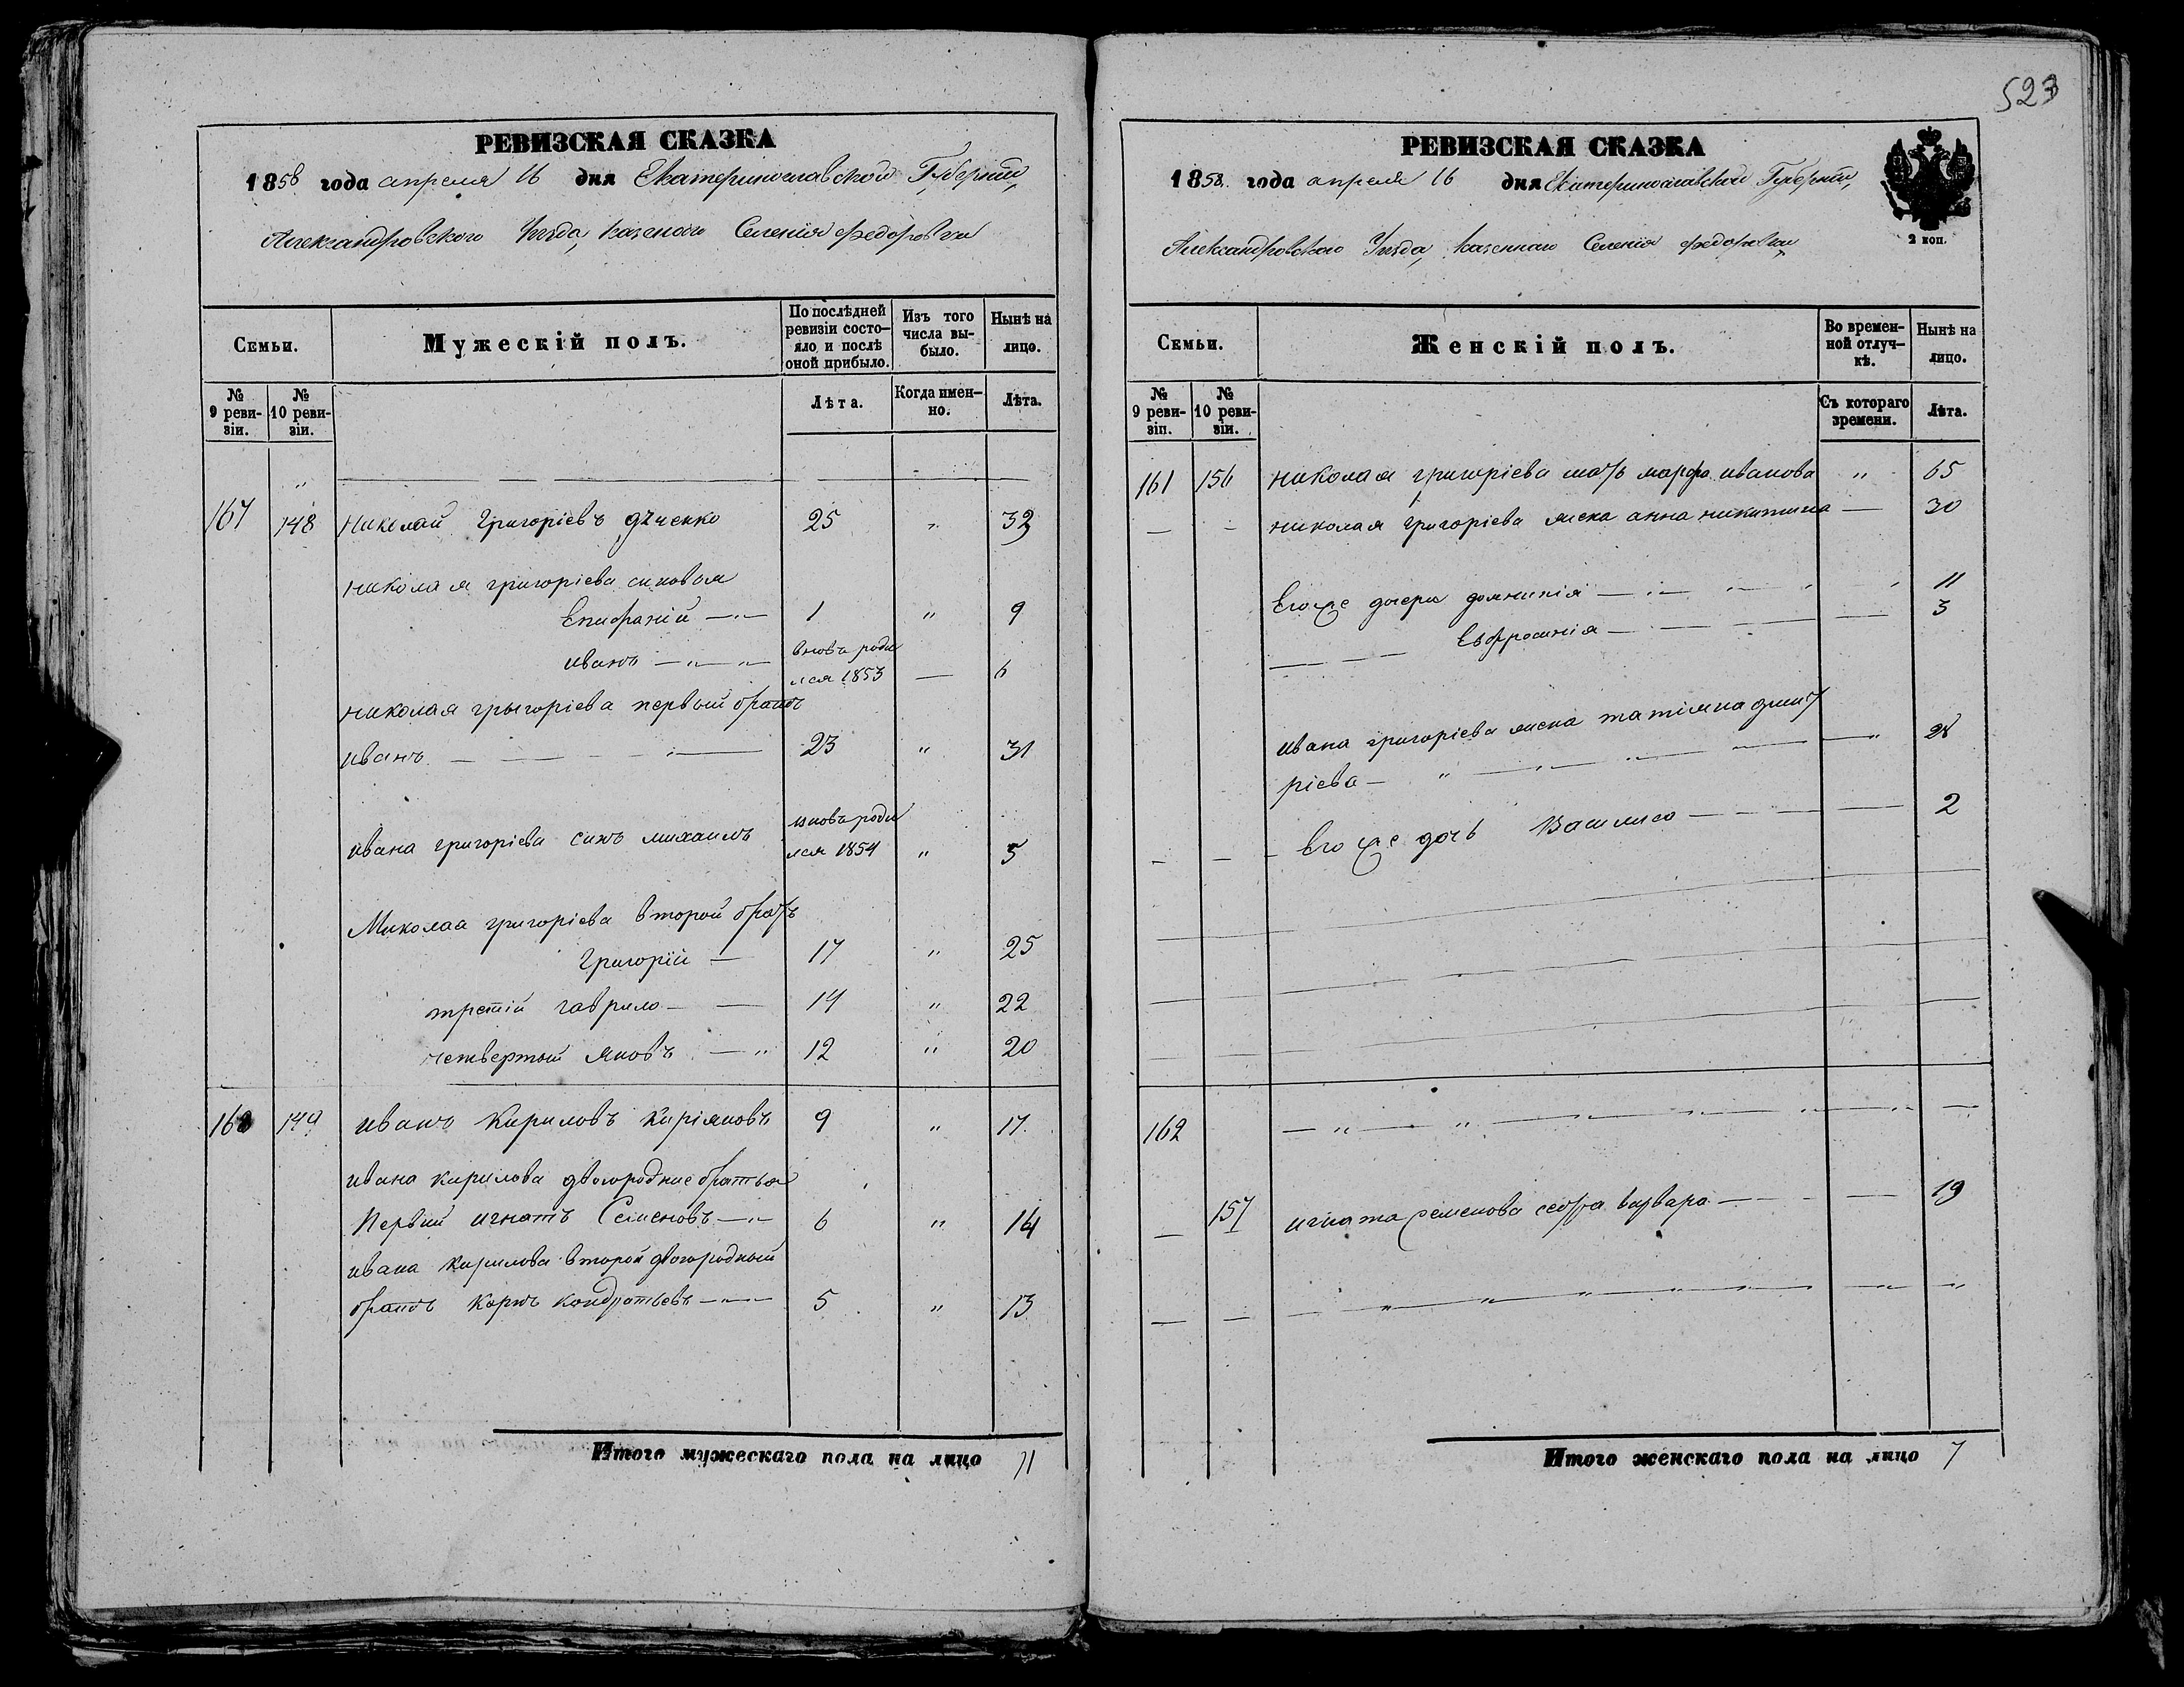 523
РЕВИЗСКАЯ СКАЗКА
1858 года апреля 16 дня Екатеринославской Губернии,
Александровского Уезда, казеного Селения Федоровки
Семьи. Мужескій полъ. По послѣдней ревизіи состояло и послѣ оной прибыло. Изъ того числа выбыло. Нынѣ на лицо.
№ 9 ревизіи. № 10 ревизіи. Лѣта. Когда именно. Лѣта.
148 Николай Григоріевъ 25 " 32
николая григоріева сыновья
Епифаній 1 " 9
вновь роди
иванъ лся 1853 — 6
николая грыгоріева первый братъ
иванъ 23 " 31
вновь роди
ивана григоріева синъ михаилъ лся 1854 " 5
Миколаа григоріева второй братъ
Григорій 17 " 25
третій гаврило 14 " 22
четвертый яковъ 12 " 20
149 иванъ Кириловъ Киріяновъ 9 " 17
ивана кирилова двоюродние братья
Первий игнатъ Семеновъ 6 " 14
ивана кирилова второй двоюродный
братъ Карпъ Кондратьевъ 5 " 13
Итого мужескаго пола на лицо 11
РЕВИЗСКАЯ СКАЗКА
1858 года апреля 16 дня Екатеринославской Губернии,
Александровскаго Уезда, казеннаго Селения Федоровки
2 коп.
Семьи. Женскій полъ. Во временной отлучкѣ. Нынѣ на лицо.
№ 9 ревизіи. № 10 ревизіи. Съ котораго времени. Лѣта.
161 156 николая григоріева мать марфа иванова " 65
николая григоріева жена анна никитина — 30
Егоже дочери домникія 11
Евфросинія 3
ивана григоріева жена татіяна дмит
ріева " 28
Его же дочь Василиса 2
162
157 игната семенова сестра варвара 19
Итого женскаго пола на лицо 7